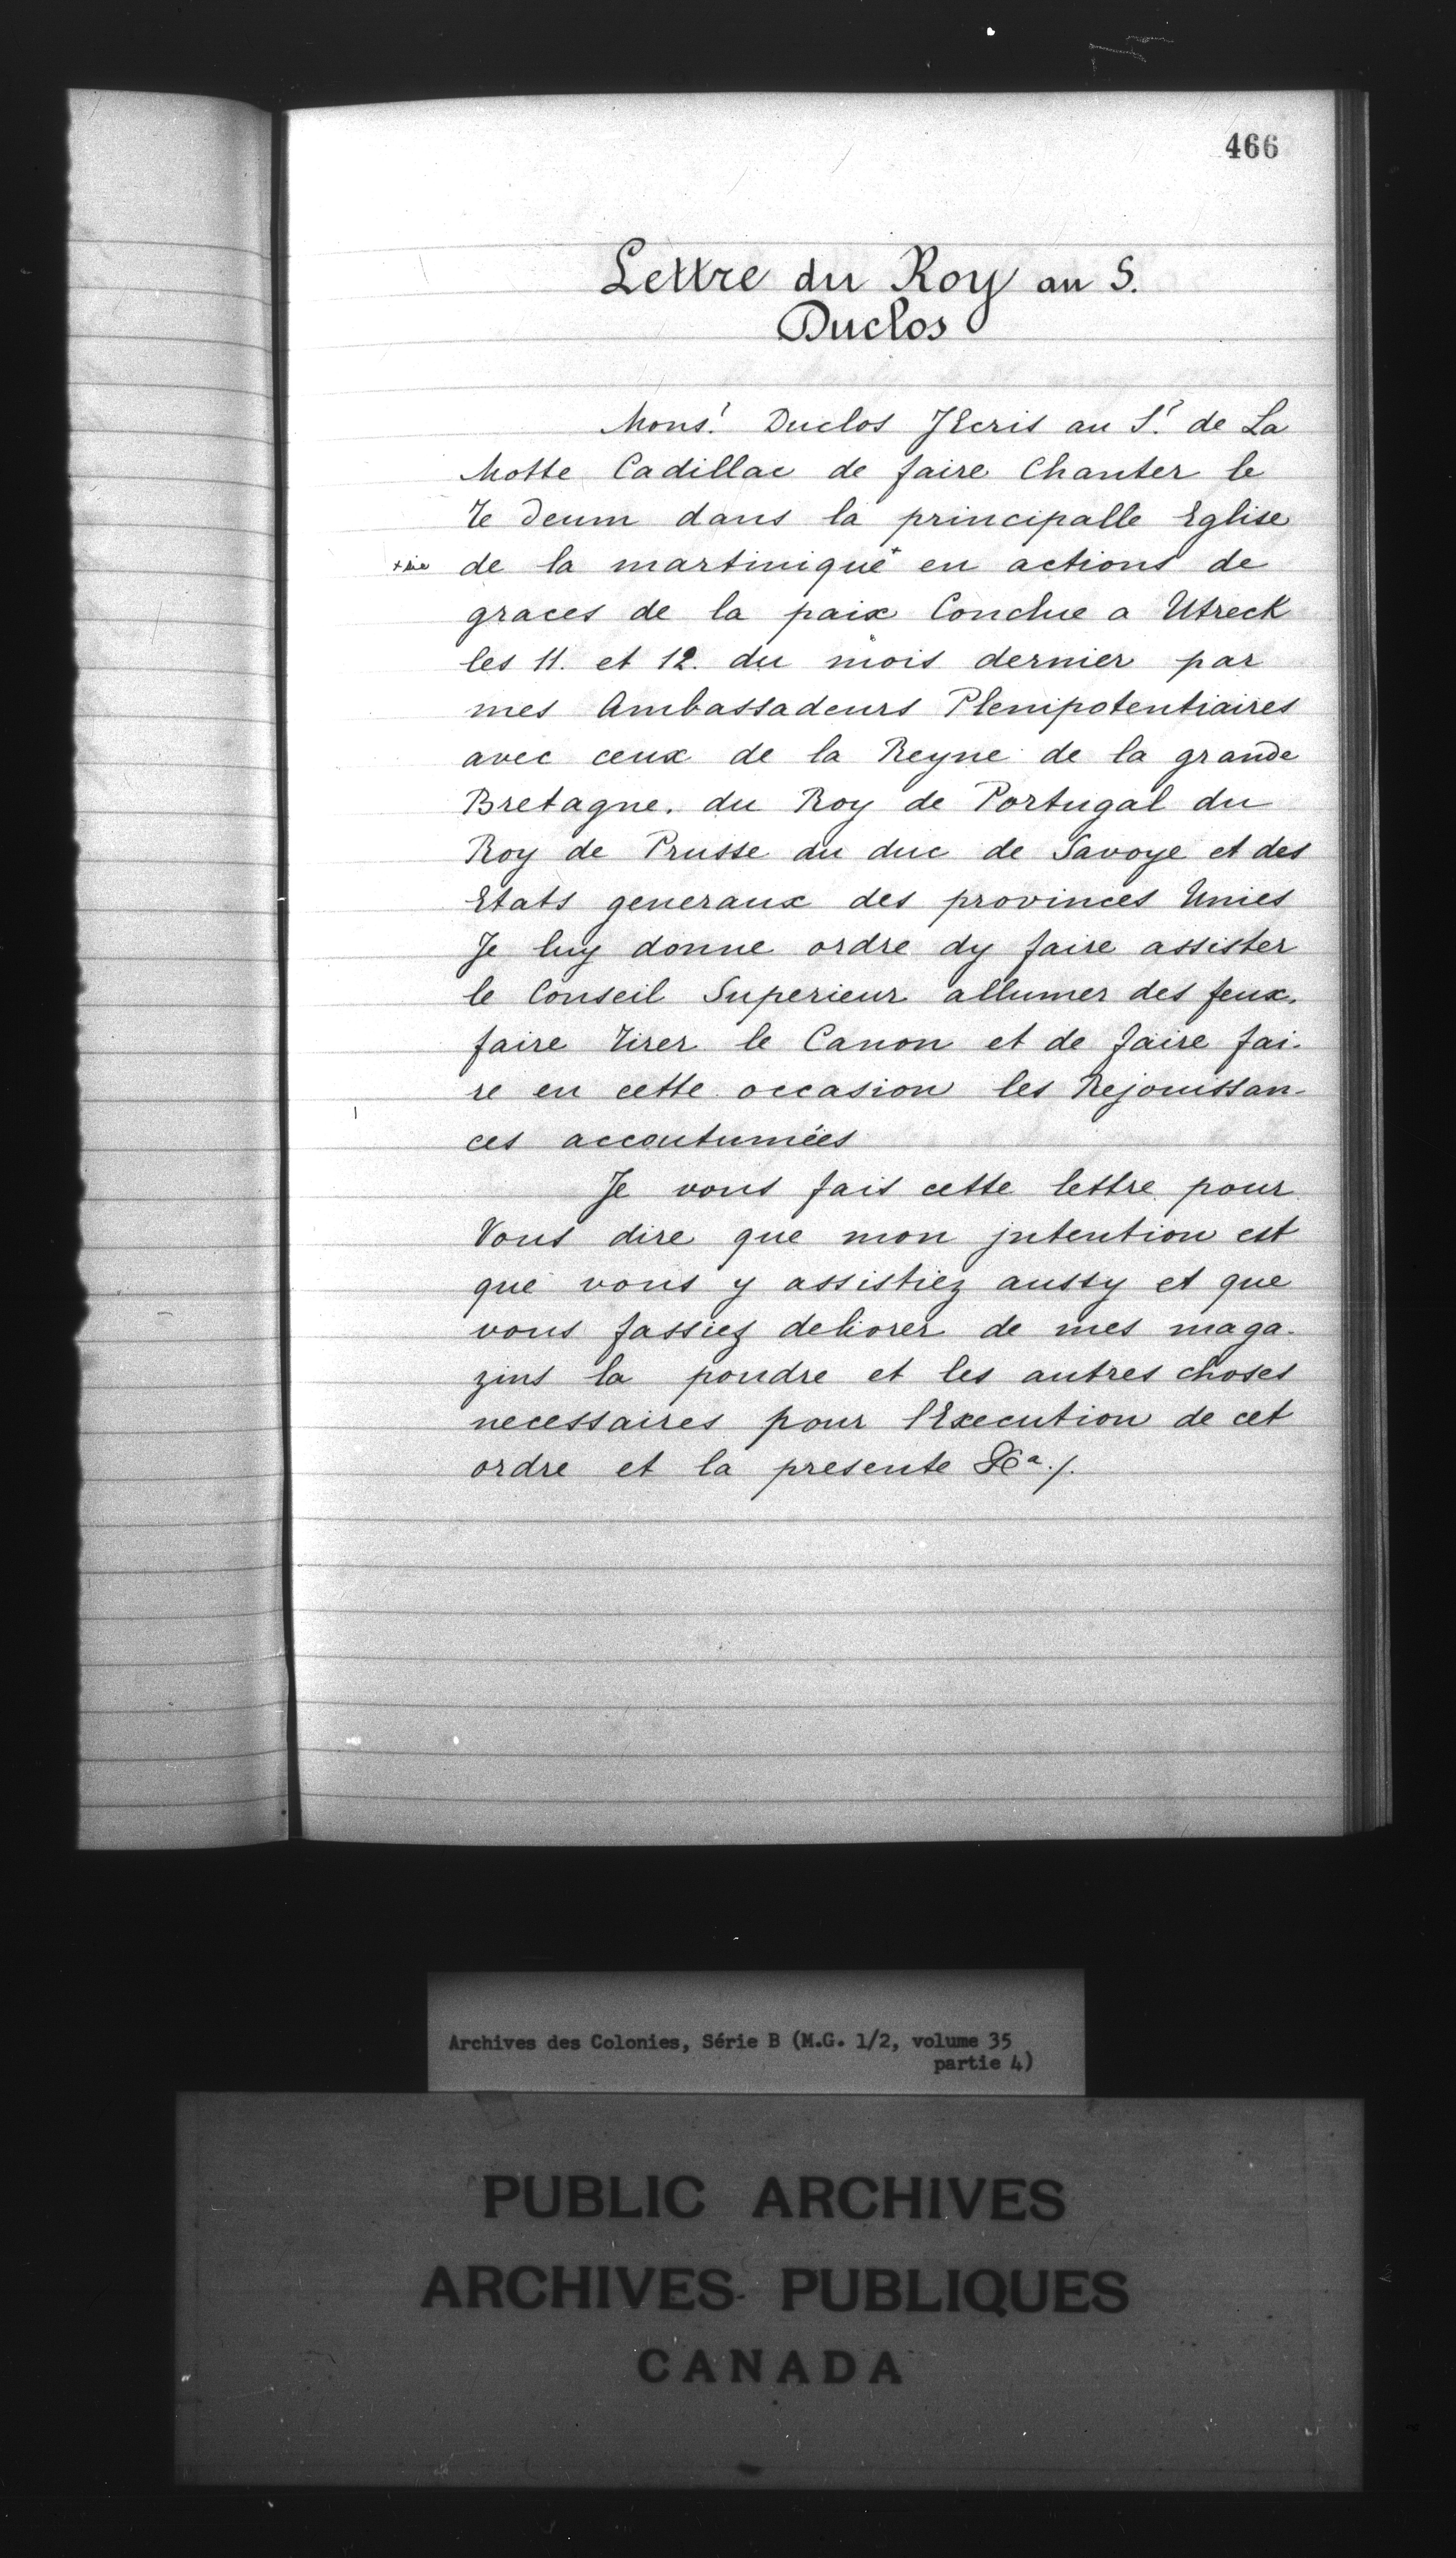 466
Lettre du Roy au S.
Duclos
Mons.r Duclos JEcris au S.r de La
Motte Cadillac de faire Chanter le
Te deum dans la principalle Eglise
+sic de la martinique+ en actions de
graces de la paix Conclue a Utreck
les 11. et 12. du mois dernier par
mes Ambassadeurs Plenipotentiaires
avec ceux de la Reyne de la grande
Bretagne. du Roy de Portugal du
Roy de Prusse du duc de Savoye et des
Etats generaux des provinces Unies
Je luy donne ordre dy faire assister
le Conseil Superieur allumer des feux.
faire tirer le Canon et de faire fai-
re en cette occasion les Rejouissan-
ces accoutumées
Je vous fais cette lettre pour
Vous dire que mon jntention est
que vous y assistiez aussy et que
vous fassiez deliorer de mes maga-
zins la poudre et les autres choses
necessaires pour lExecution de cet
ordre et la presente &a./.
Archives des Colonies, Série B (M.G. 1/2, volume 35
partie 4)
PUBLIC ARCHIVES
ARCHIVES PUBLIQUES
CANADA